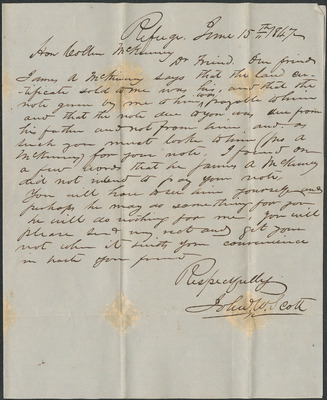 Refuge, June 15th 1847
Hon Collin McKinney
Dr Friend. Our friend
James A McKinney says that the land cer-
tificate sold to me was his, and that the
note given by me to him, payable to him
and that the note due to you was due from
his father and not from him, and as
such you must look to him
McKinney) for your note. I found on
a few words that he James A McKinney
did not intend to pay your note.
You will have to see him yourself and
perhaps he may do something for you
he will do nothing for me You will
please send my rect and get your
not when it suits your convenience
in haste your friend
Respectfully
John W. Scott